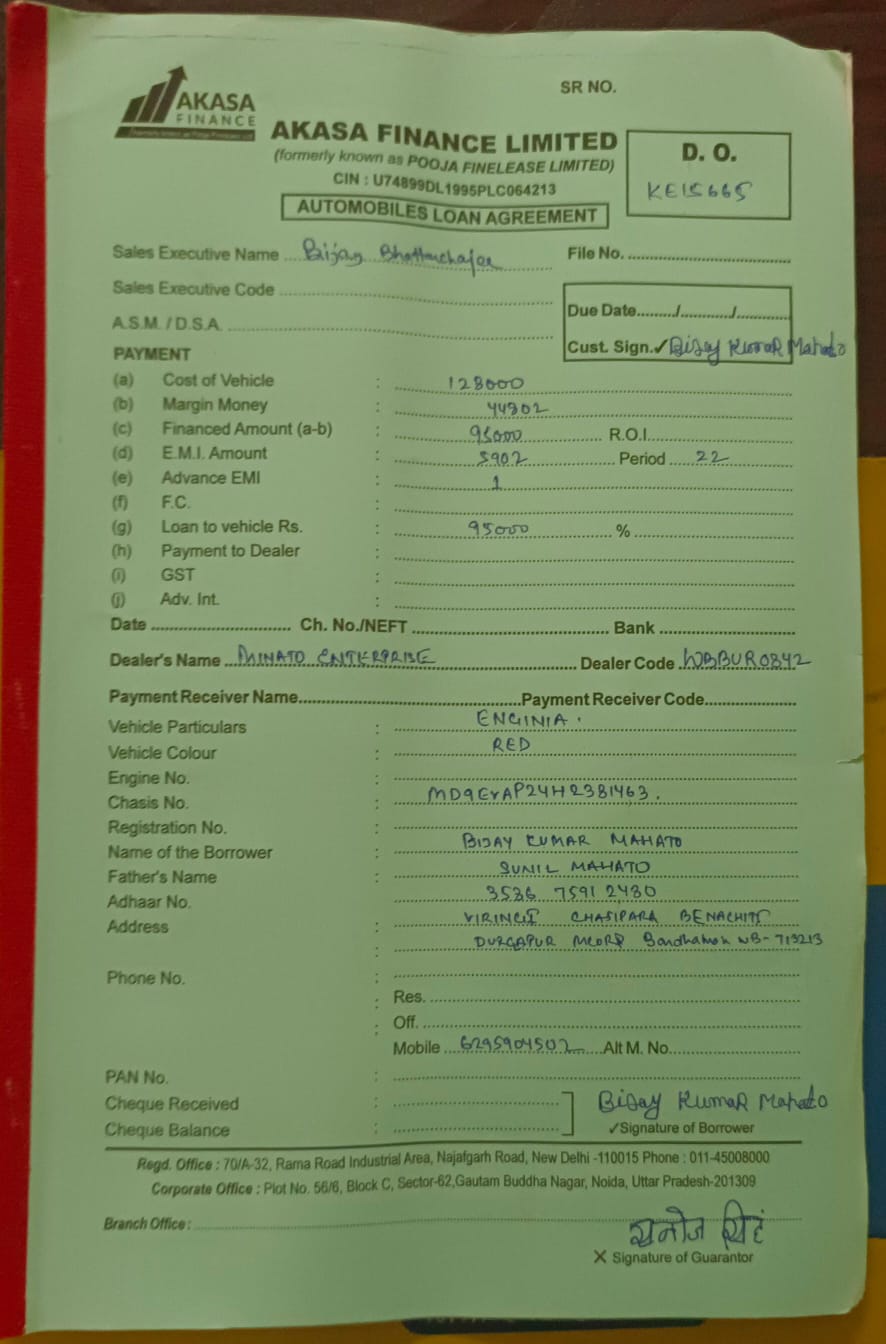 SR NO.
AKASA
FINANCE
AKASA FINANCE LIMITED
(formerly known as POOJA FINELEASE LIMITED)
CIN : U74899DL1995PLC064213
AUTOMOBILES LOAN AGREEMENT
D. O.
KE15665
Sales Executive Name Bijay Bhattacharjee
File No.
Sales Executive Code
Due Date......../............/............
A.S.M. / D.S.A.
Cust. Sign.✓ Bijay Kumar Mahato
PAYMENT
(a) Cost of Vehicle : 128000
(b) Margin Money : 44802
(c) Financed Amount (a-b) : 95000 R.O.I.
(d) E.M.I. Amount : 5902 Period 22
(e) Advance EMI : 1
(f) F.C. :
(g) Loan to vehicle Rs. : 95000 %
(h) Payment to Dealer :
(i) GST :
(j) Adv. Int. :
Date Ch. No./NEFT Bank
Dealer's Name MINATO ENTERPRISE Dealer Code WBBUR0842
Payment Receiver Name Payment Receiver Code
Vehicle Particulars : ENGINIA.
Vehicle Colour : RED
Engine No. :
Chasis No. : MD9EVAP24H2381463.
Registration No. :
Name of the Borrower : BIJAY KUMAR MAHATO
Father's Name : SUNIL MAHATO
Adhaar No. 3536 7591 2480
Address : VIRINGI CHASIPARA BENACHITI
: DURGAPUR MCORP Bardhaman WB-713213
Phone No. :
: Res.
: Off.
Mobile 6295904502 Alt M. No.
PAN No. :
Cheque Received : Bijay Kumar Mahato
Cheque Balance : ✓Signature of Borrower
Regd. Office : 70/A-32, Rama Road Industrial Area, Najafgarh Road, New Delhi -110015 Phone : 011-45008000
Corporate Office : Plot No. 56/6, Block C, Sector-62,Gautam Buddha Nagar, Noida, Uttar Pradesh-201309
Branch Office :
मनोज सिहं
X Signature of Guarantor